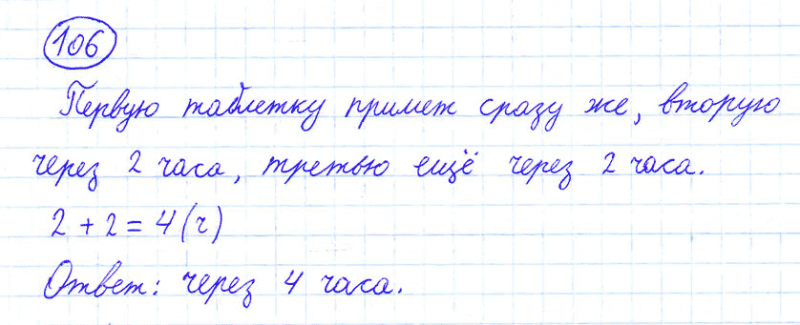 106
Первую таблетку примет сразу же, вторую
через 2 часа, третью ещё через 2 часа.
2 + 2 = 4 (ч)
Ответ: через 4 часа.